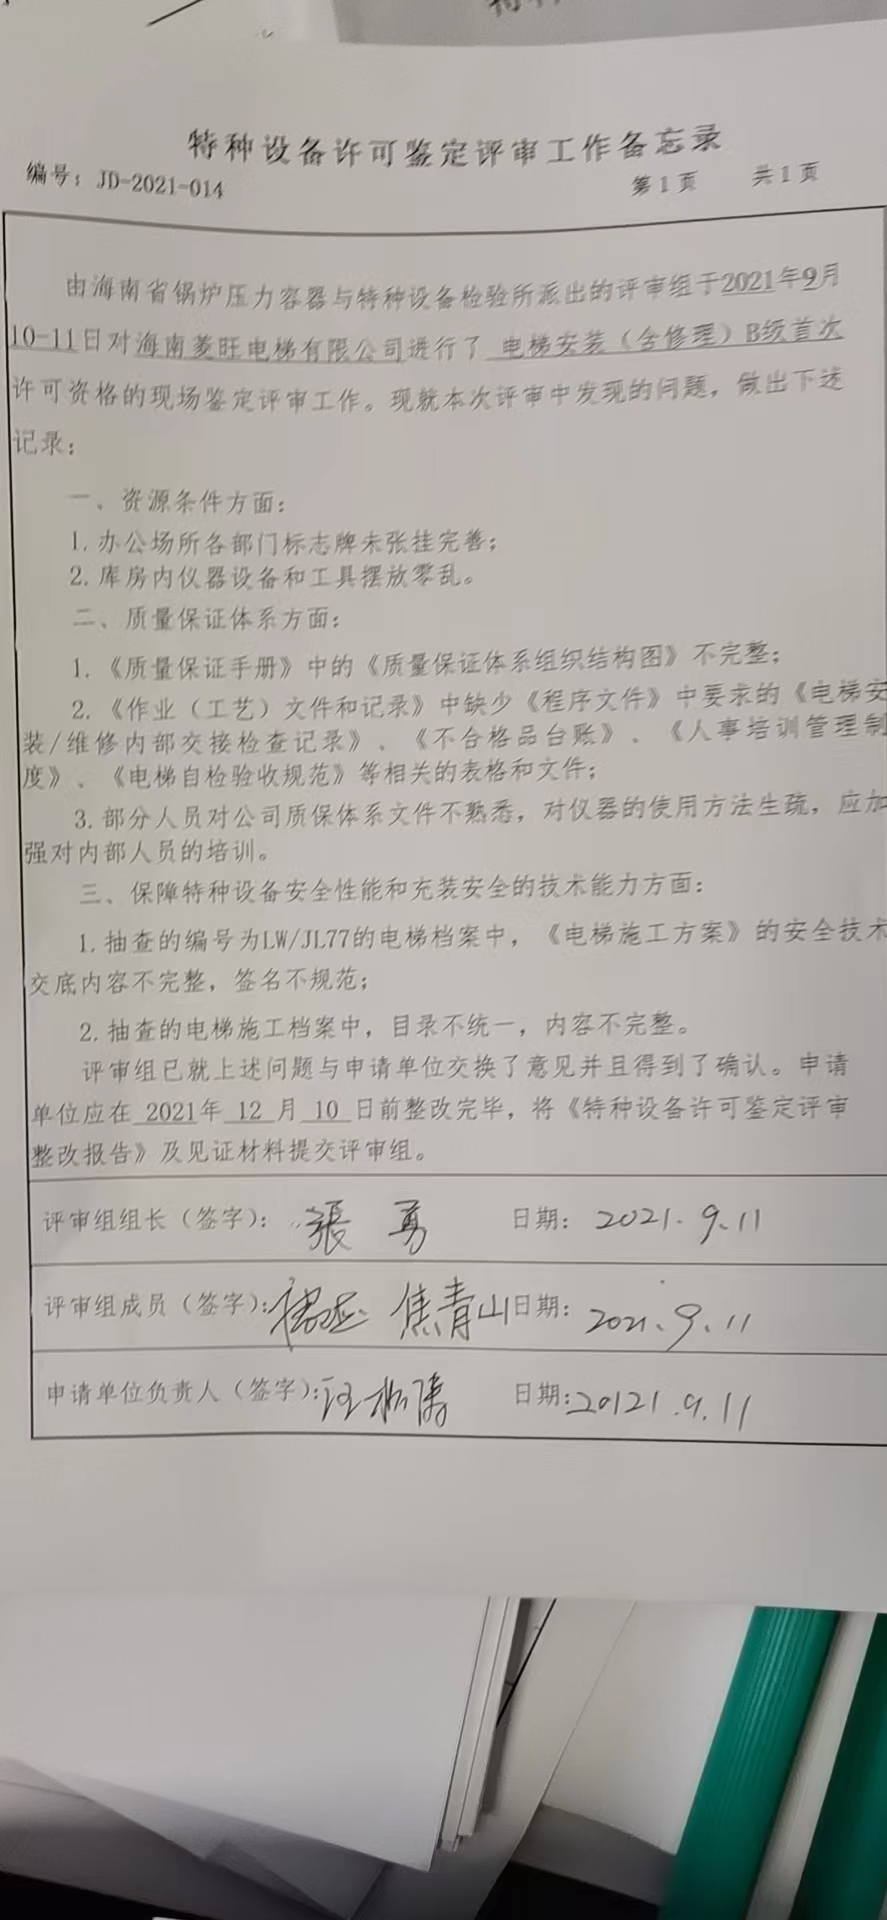 特种设备许可鉴定评审工作备忘录
编号：JD-2021-014 第1页 共1页
由海南省锅炉压力容器与特种设备检验所派出的评审组于2021年9月
10-11日对海南菱旺电梯有限公司进行了 电梯安装（含修理）B级首次
许可资格的现场鉴定评审工作。现就本次评审中发现的问题，做出下述
记录：
一、资源条件方面：
1.办公场所各部门标志牌未张挂完善；
2.库房内仪器设备和工具摆放零乱。
二、质量保证体系方面：
1.《质量保证手册》中的《质量保证体系组织结构图》不完整；
2.《作业（工艺）文件和记录》中缺少《程序文件》中要求的《电梯安
装/维修内部交接检查记录》、《不合格品台账》、《人事培训管理制
度》、《电梯自检验收规范》等相关的表格和文件；
3.部分人员对公司质保体系文件不熟悉，对仪器的使用方法生疏，应加
强对内部人员的培训。
三、保障特种设备安全性能和充装安全的技术能力方面：
1.抽查的编号为LW/JL77的电梯档案中，《电梯施工方案》的安全技术
交底内容不完整，签名不规范；
2.抽查的电梯施工档案中，目录不统一，内容不完整。
评审组已就上述问题与申请单位交换了意见并且得到了确认。申请
单位应在 2021年 12 月 10 日前整改完毕，将《特种设备许可鉴定评审
整改报告》及见证材料提交评审组。
评审组组长（签字）： 張勇 日期： 2021.9.11
评审组成员（签字）： 焦青山 日期： 2021.9.11
申请单位负责人（签字）： 汪 日期：20121.9.11